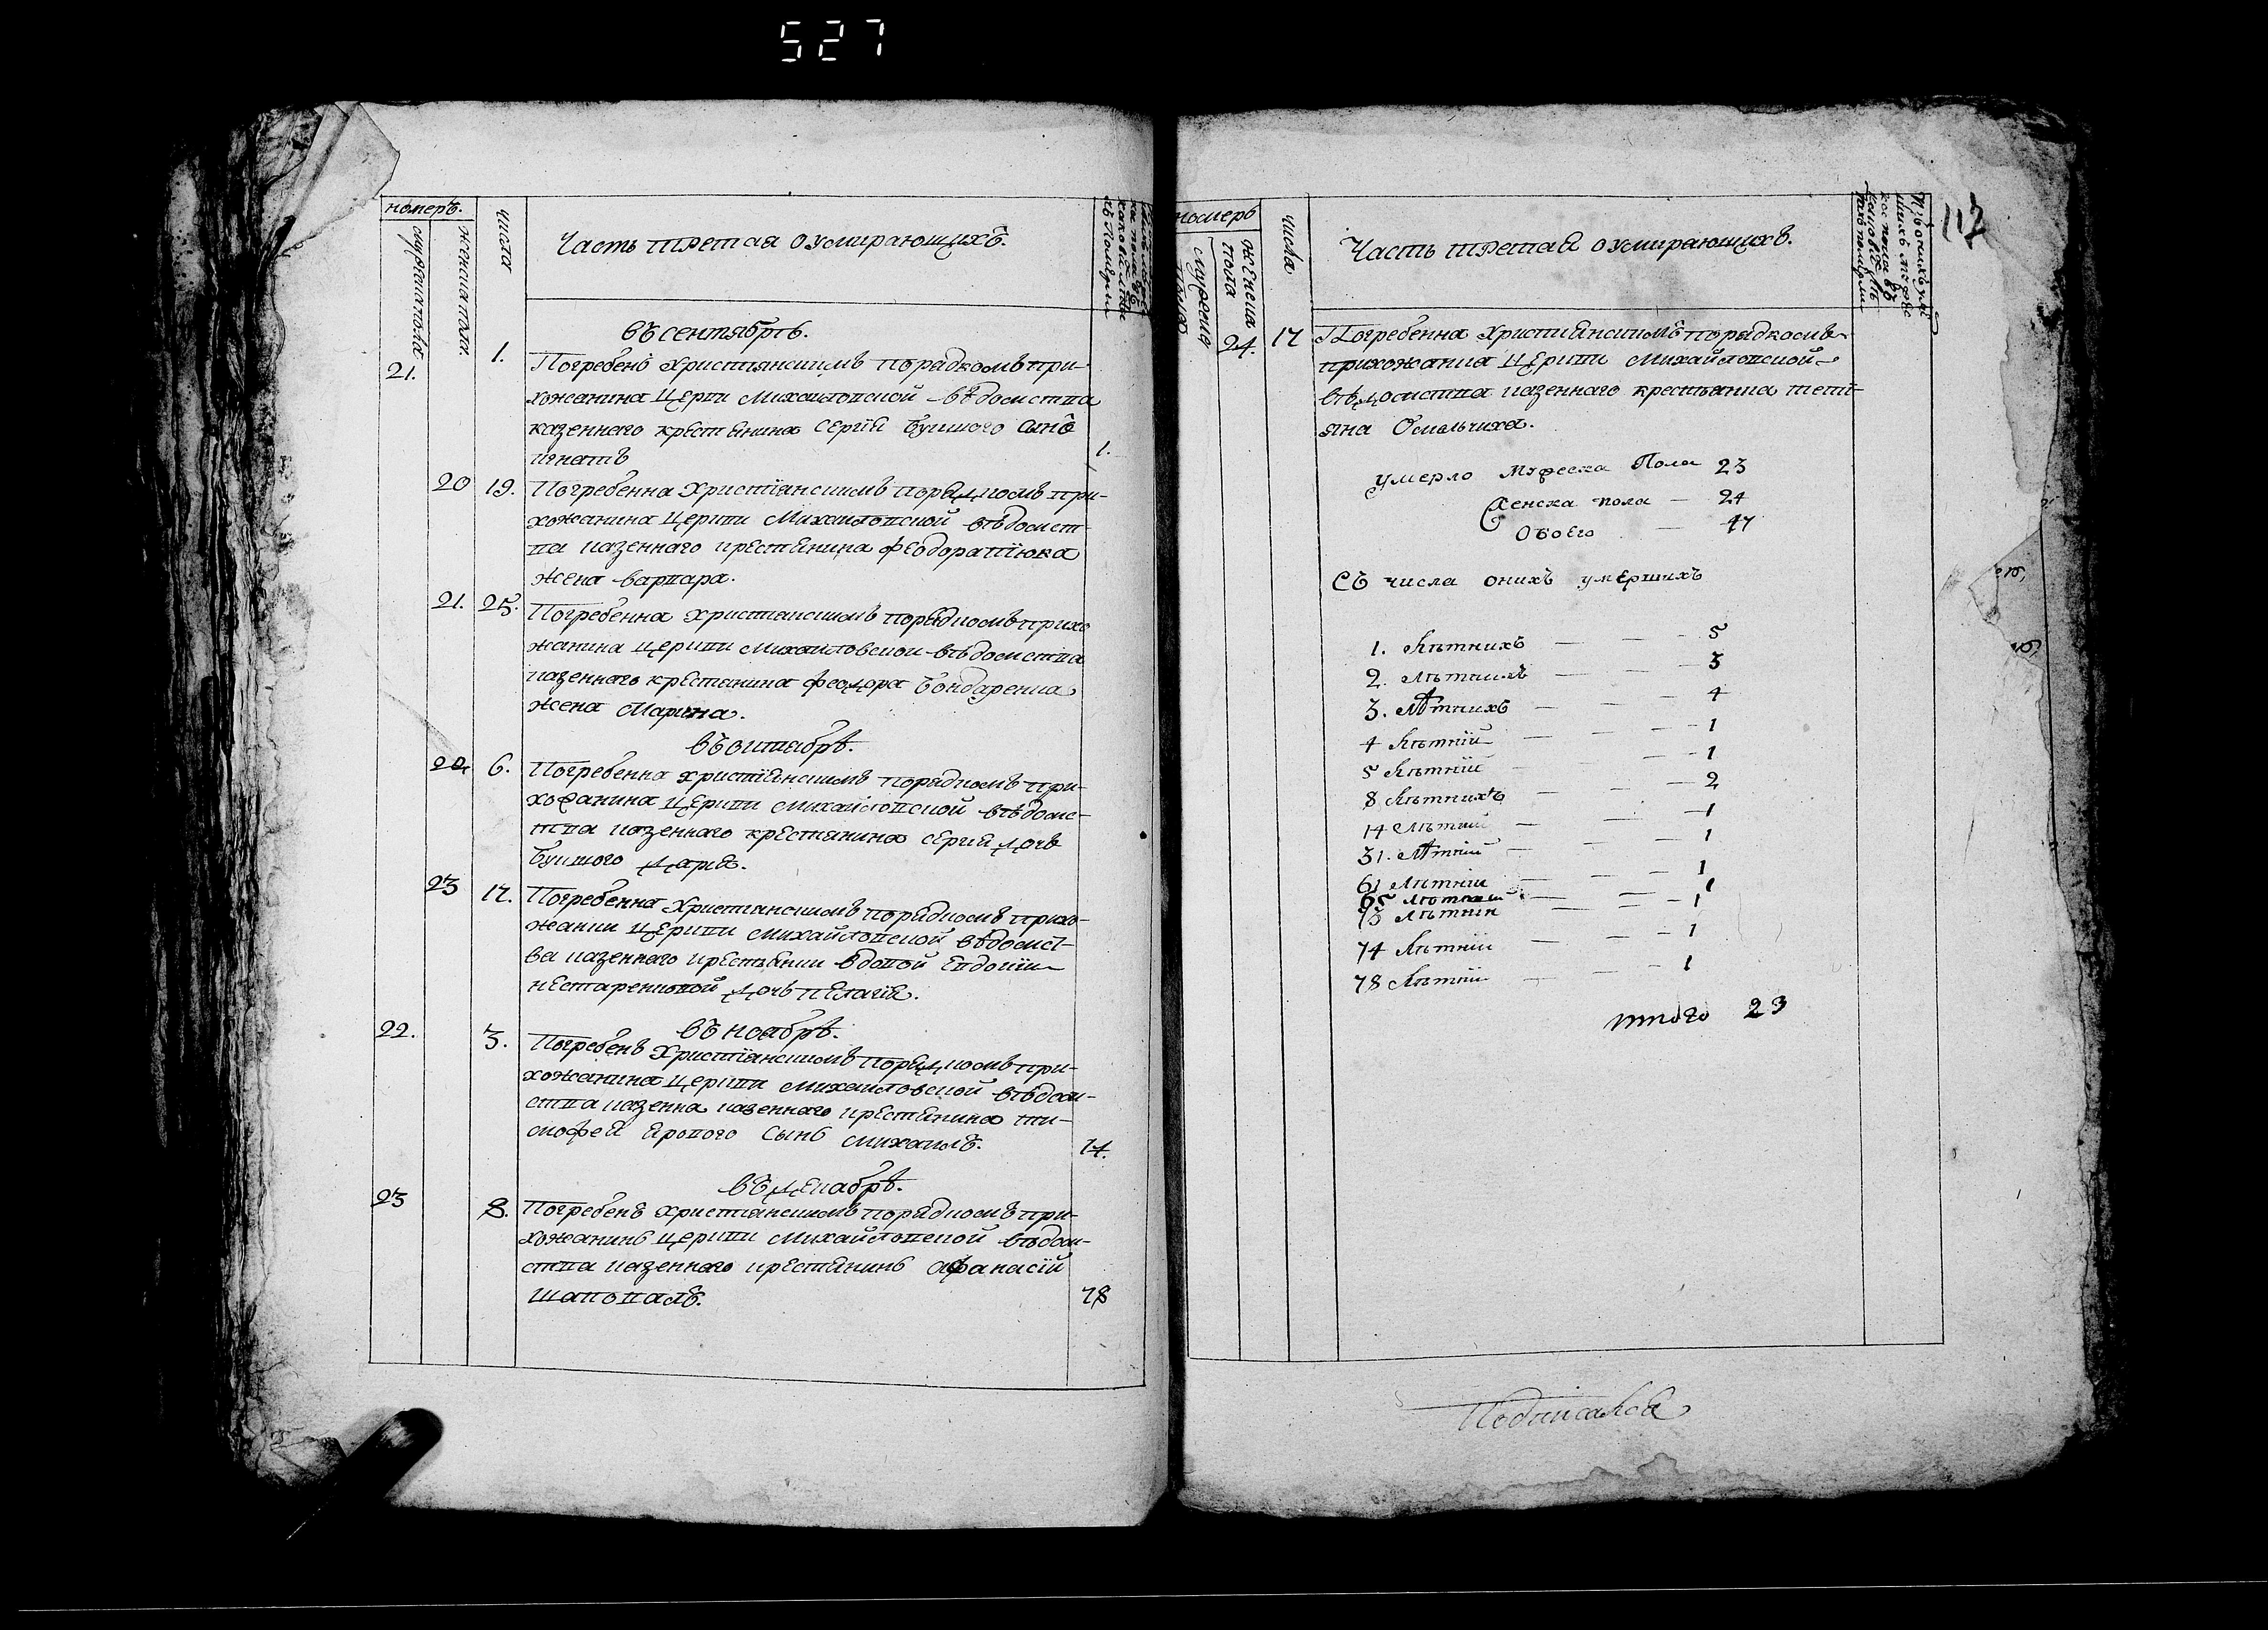 527
номеръ.
мужеска пола
женска пола.
числа
Часть третая оумирающихъ.
Въ сентябрѣ.
21.
1.
Погребенъ христіянскимъ порядкомъ при-
хожанина Церкви Михайловской вѣдомства
казеннаго крестянина Сергія Буцкого сынъ
игнатъ
1.
20
19.
Погребенна Христіянскимъ порядкомъ при-
хожанина Церкви Михайловской вѣдомст-
ва казеннаго крестянина Феодора
жена варвара.
21.
25.
Погребенна Христіанскимъ порядкомъ прихо
жанина церкви Михайловской вѣдомства
казеннаго крестянина Феодора Бондаренка
жена Марина.
Въ октабрѣ.
22
6.
Погребенна христіянскимъ порядкомъ при-
хожанина Церкви Михайловской вѣдомс-
тва казеннаго крестянина Сергія дочь
дарія.
23
17.
Погребенна Христіанскимъ порядкомъ прихо-
жанки Церкви Михайловской вѣдомст-
ва казеннаго крестьянки вдовой Евдокіи
нестаренковой дочь пелагія.
Въ ноябрѣ.
22.
3.
Погребенъ Христіянскимъ порядкомъ при-
хожанина Церкви Михайловской вѣдом-
ства казенна казеннаго крестянина ти-
мофея ярового сынъ михаилъ.
14.
Въ декабрѣ.
23
8.
Погребенъ христіянскимъ порядкомъ при-
хожанинъ Церкви Михайловской вѣдом-
ства казеннаго крестянинъ афанасій
шаповалъ.
78
номеръ
мужеска пола
женска пола
числа
Часть третая оумирающихъ.
117
24.
17
Погребенна Христіянскимъ порядкомъ
прихожанка Церкви Михайловской
вѣдомства казеннаго крестьянка тетї-
яна Омельчиха.
умерло Мужеска Пола 23
Женска пола — 24
Обоего — 47
Съ числа онихъ умершихъ
1. Лѣтнихъ — — — 5
2. Лѣтнихъ — — 3
3. Лѣтнихъ — — — 4
4 Лѣтнїй — — — 1
5 Лѣтнїй — — — 1
8 Лѣтнихъ — — — 2
14 Лѣтнїй — — — 1
31. Лѣтнїй — — — 1
61 Лѣтнїй — — — 1
65 Лѣтнїй — — 1
73 Лѣтнїй — — — 1
74 Лѣтнїй — — — 1
78 Лѣтнїй — — — 1
итого 23
Подписалъ